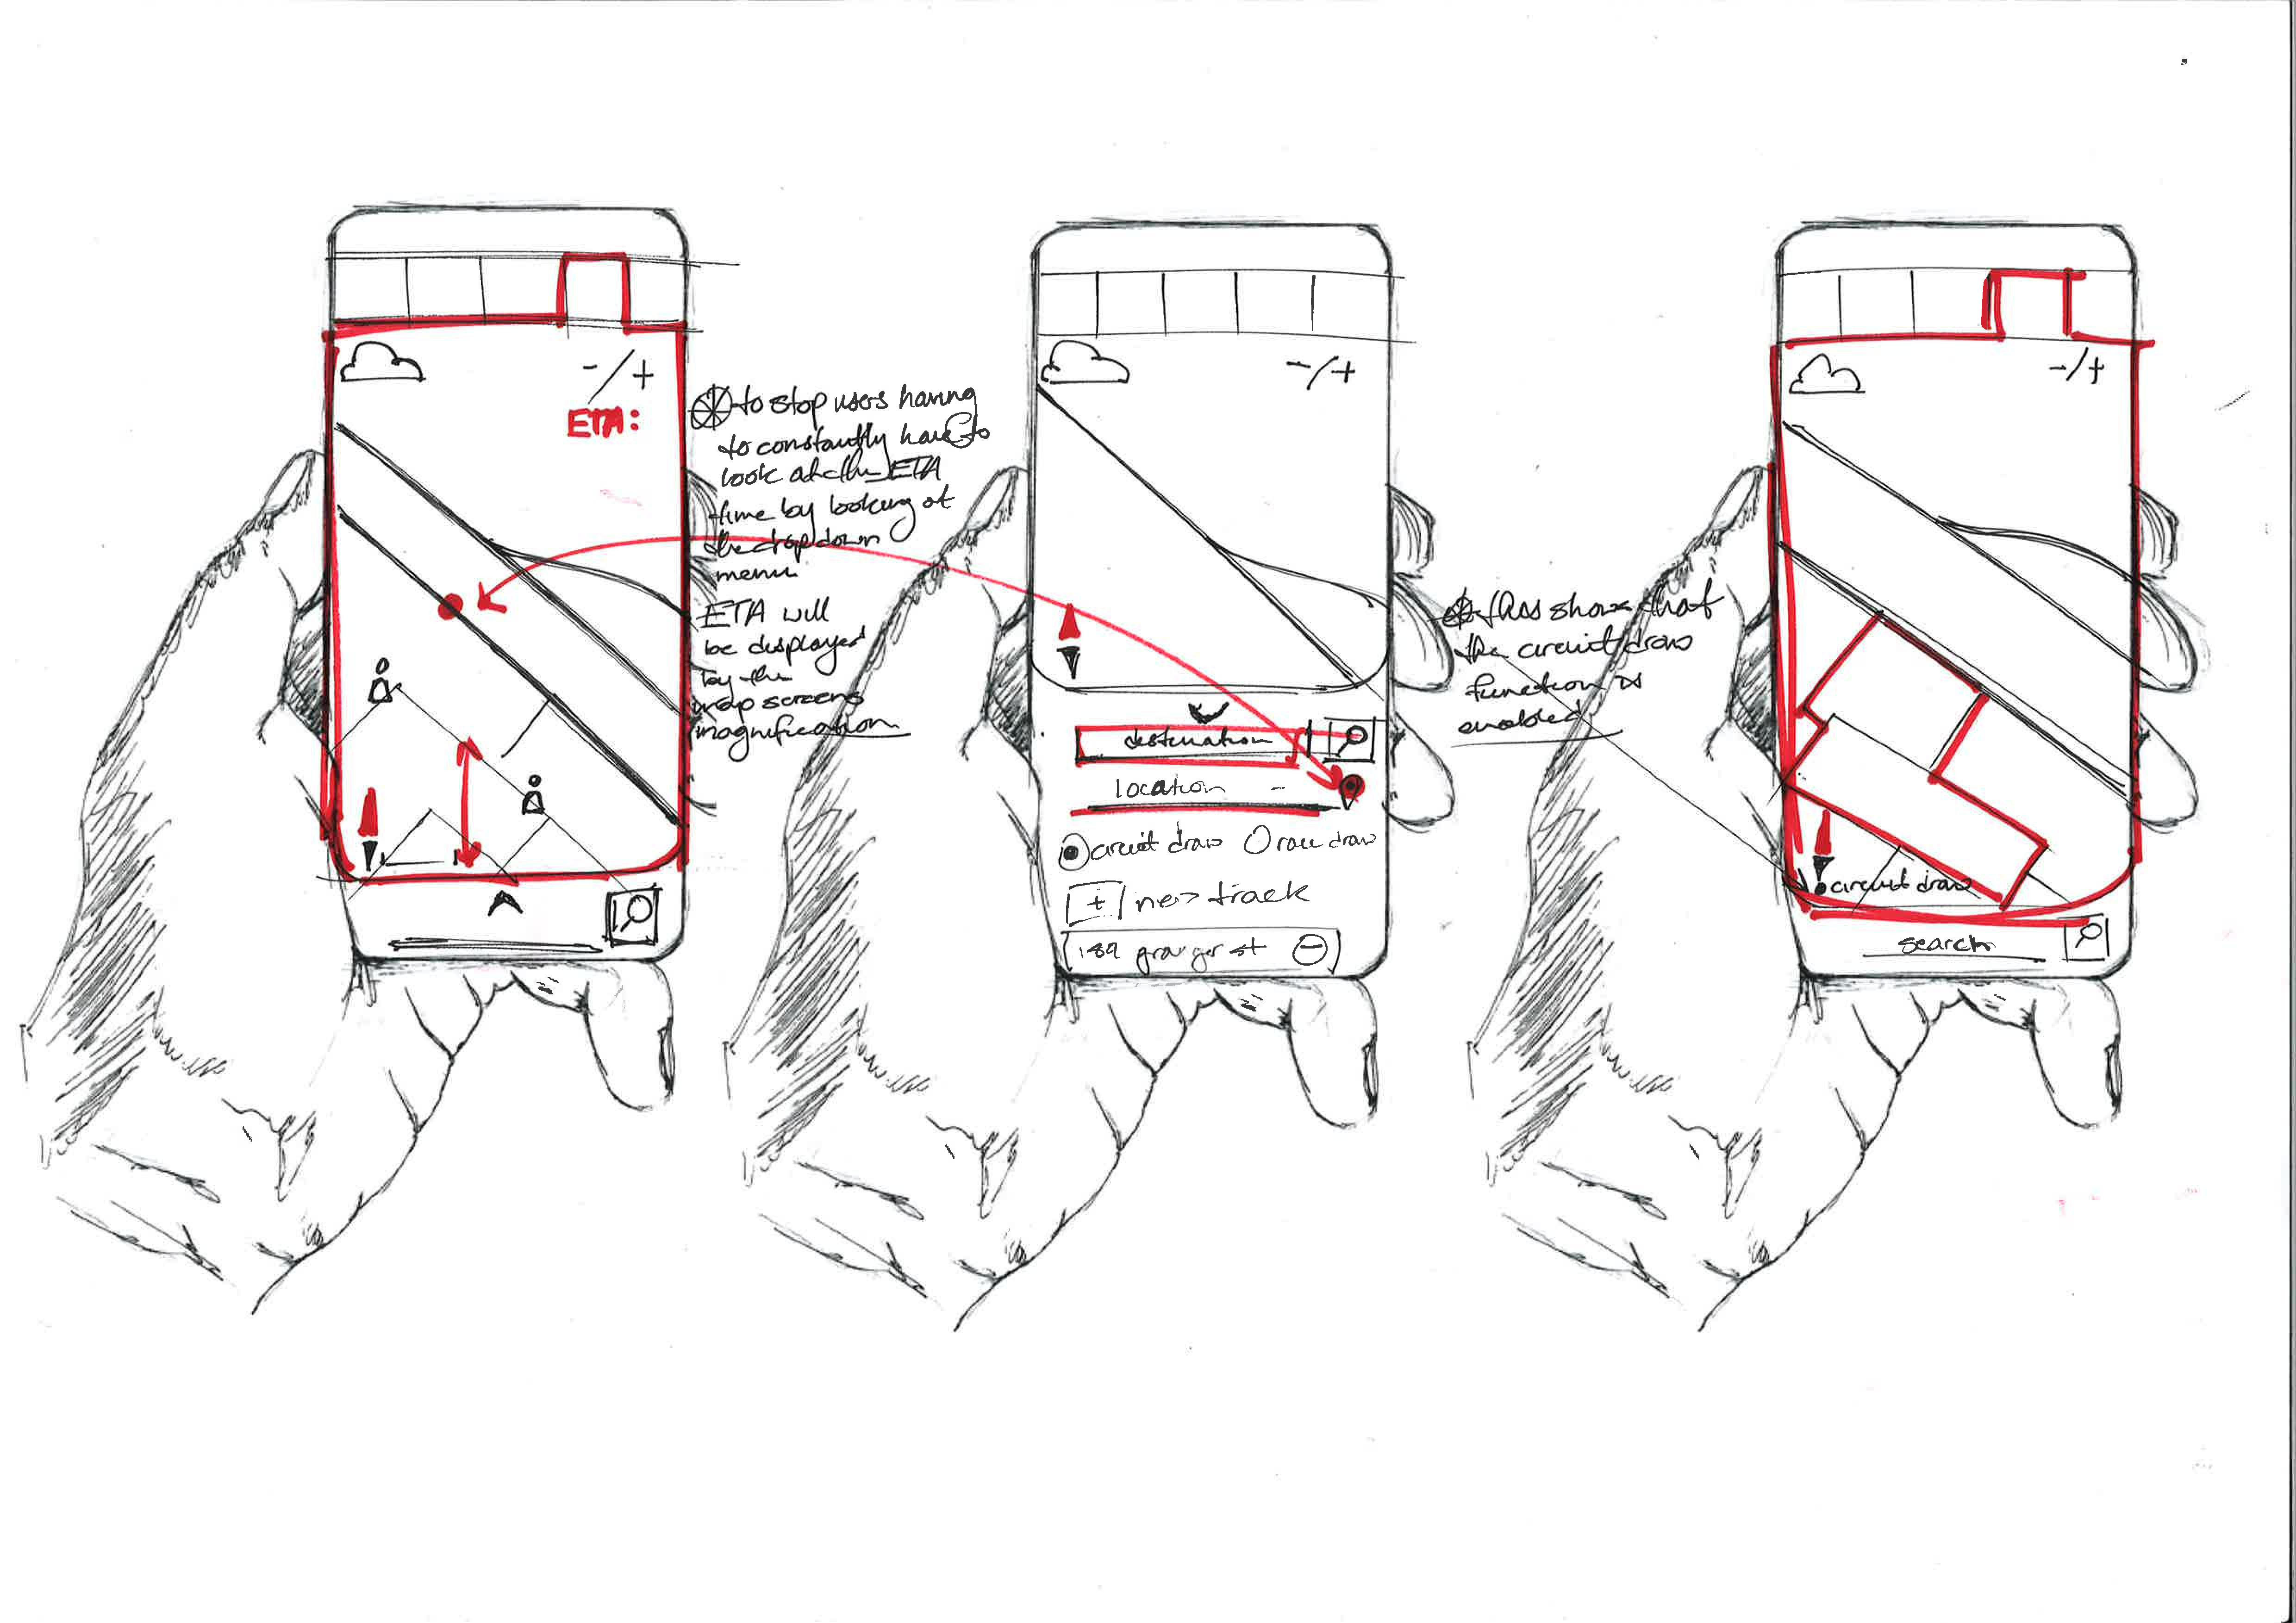 -/+
ETA:
to stop users having
to constantly have to
look at the ETA
time by looking at
the drop down
menu.
ETA will
be displayed
by the
map screens
magnification
-/+
destination
location -
circuit draw race draw
+ new track
189 grainger st -
this shows that
the circuit draw
function is
enabled
-/+
circuit draw
search